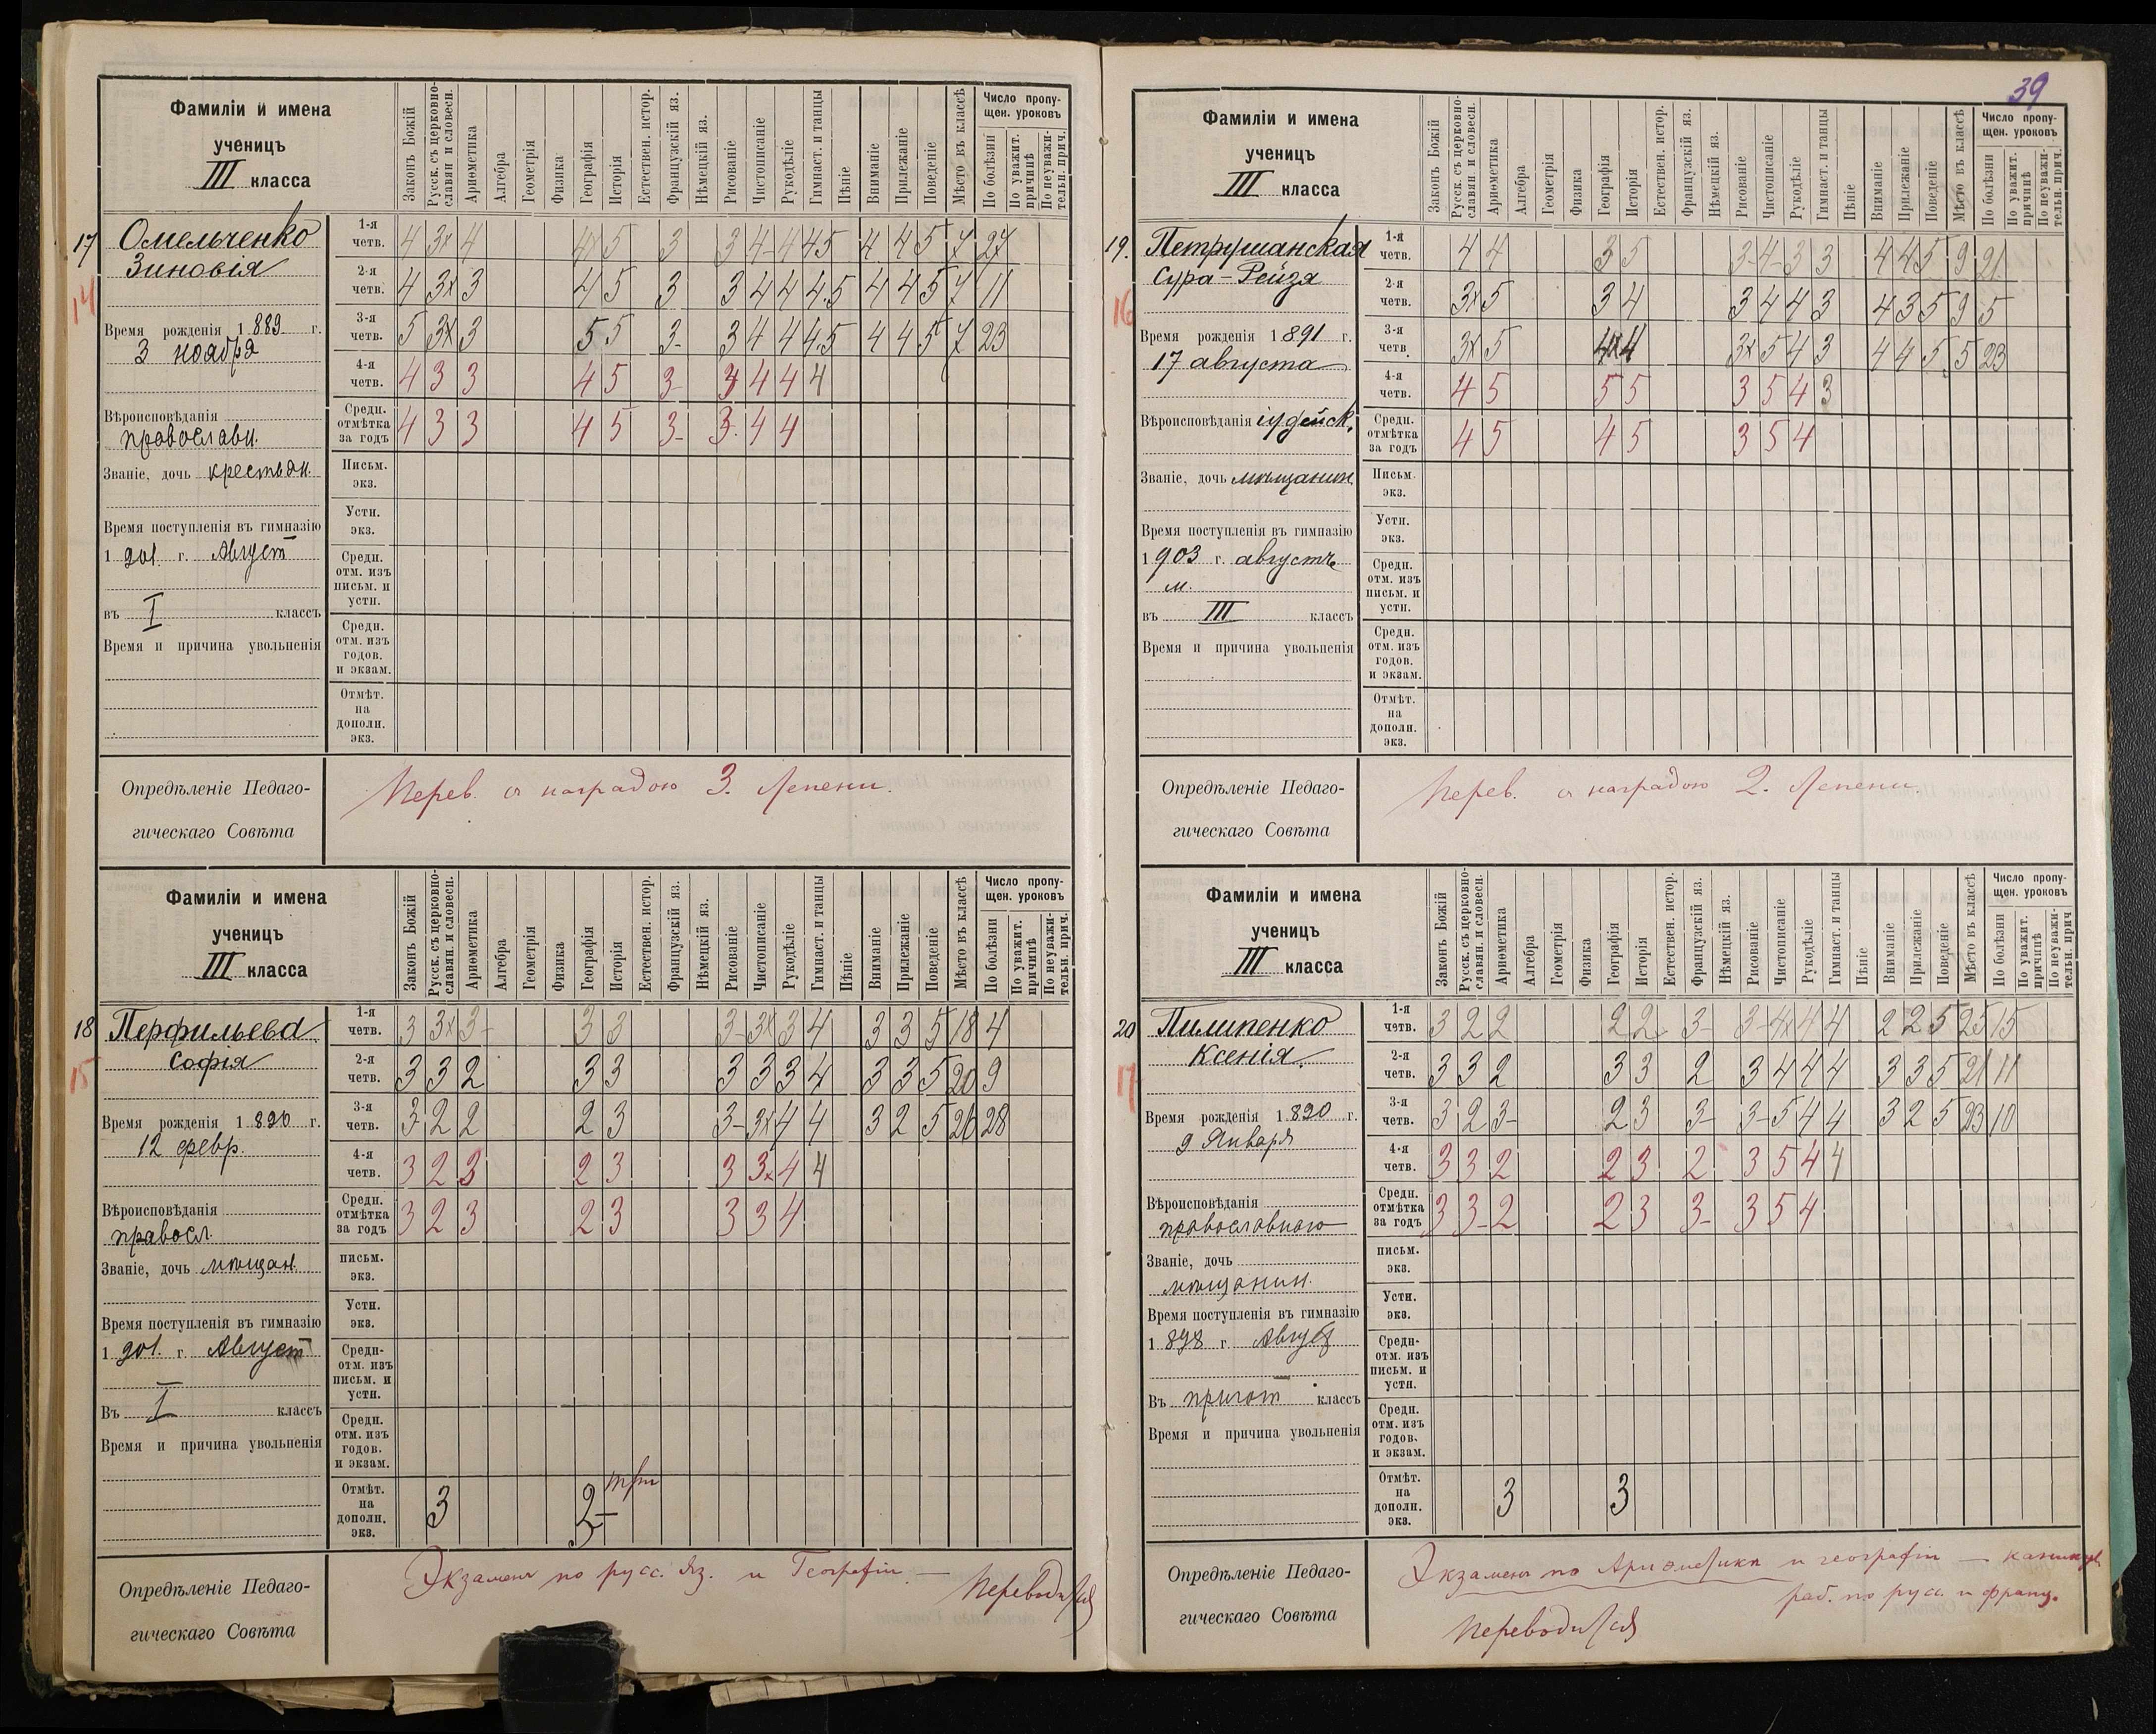 39
Фамиліи и имена
ученицъ
III класса
Законъ Божій
Русск. съ церковно-славян. и словесн.
Ариѳметика
Алгебра
Геометрія
Физика
Географія
Исторія
Естествен. истор.
Французскій яз.
Нѣмецкій яз.
Рисованіе
Чистописаніе
Рукодѣліе
Гимнаст. и танцы
Пѣніе
Вниманіе
Прилежаніе
Поведеніе
Мѣсто въ классѣ
Число пропу-
щен. уроковъ
По болѣзни
По уважит. причинѣ
По неуважи-тельн. прич.
17 Омельченко
Зиновія
14
Время рожденія 1889 г.
3 ноября
Вѣроисповѣданія
православн.
Званіе, дочь крестьян.
Время поступленія въ гимназію
1901 г. Август
въ I классъ
Время и причина увольненія
1-я четв. 4 3x 4 4x 5 3 3 4 4 4 5 4 4 5 7 27
2-я четв. 4 3x 3 4 5 3 3 4 4 4 5 4 4 5 7 11
3-я четв. 5 3x 3 5 5 3- 3 4 4 4 5 4 4 5 7 23
4-я четв. 4 3 3 4 5 3- 3 4 4 4
Средн. отмѣтка за годъ 4 3 3 4 5 3- 3 4 4
Письм. экз.
Устн. экз.
Средн. отм. изъ письм. и устн.
Средн. отм. изъ годов. и экзам.
Отмѣт. на дополн. экз.
Опредѣленіе Педаго-
гическаго Совѣта
Перев. съ наградою 3. степени.
Фамиліи и имена
ученицъ
III класса
Законъ Божій
Русск. съ церковно-славян. и словесн.
Ариѳметика
Алгебра
Геометрія
Физика
Географія
Исторія
Естествен. истор.
Французскій яз.
Нѣмецкій яз.
Рисованіе
Чистописаніе
Рукодѣліе
Гимнаст. и танцы
Пѣніе
Вниманіе
Прилежаніе
Поведеніе
Мѣсто въ классѣ
Число пропу-
щен. уроковъ
По болѣзни
По уважит. причинѣ
По неуважи-тельн. прич.
18 Перфильева
Софія
15
Время рожденія 1890 г.
12 февр.
Вѣроисповѣданія
правосл.
Званіе, дочь мѣщан.
Время поступленія въ гимназію
1901. г. Август
Въ I классъ
Время и причина увольненія
1-я четв. 3 3x 3- 3 3 3- 3x 3 4 3 3 5 18 4
2-я четв. 3 3 2 3 3 3 3 3 4 3 3 5 20 9
3-я четв. 3- 2 2 2 3 3- 3x 4 4 3 2 5 26 28
4-я четв. 3 2 3 2 3 3 3x 4 4
Средн. отмѣтка за годъ 3 2 3 2 3 3 3 4
письм. экз.
Устн. экз.
Средн- отм. изъ письм. и устн.
Средн. отм. изъ годов. и экзам.
Отмѣт. на дополн. экз. 3 2- три
3
Опредѣленіе Педаго-
гическаго Совѣта
Экзаменъ по русс. яз. и Географіи — Переводится
Фамиліи и имена
ученицъ
III класса
Законъ Божій
Русск. съ церковно-славян. и словесн.
Ариѳметика
Алгебра
Геометрія
Физика
Географія
Исторія
Естествен. истор.
Французскій яз.
Нѣмецкій яз.
Рисованіе
Чистописаніе
Рукодѣліе
Гимнаст. и танцы
Пѣніе
Вниманіе
Прилежаніе
Поведеніе
Мѣсто въ классѣ
Число пропу-
щен. уроковъ
По болѣзни
По уважит. причинѣ
По неуважи-тельн. прич.
19. Петрушанская
Сура-Рейзя
16
Время рожденія 1891 г.
17 августа
Вѣроисповѣданія іудейск.
Званіе, дочь мѣщанин.
Время поступленія въ гимназію
1903 г. августѣ
м.
въ III классъ
Время и причина увольненія
1-я четв. 4 4 3 5 3- 4- 3 3 4 4 5 9 21
2-я четв. 3x 5 3 4 3 4 4 3 4 3 5 9 5
3-я четв. 3x 5 4x 4 3x 5 4 3 4 4 5 5 23
4-я четв. 4 5 5 5 3 5 4 3
Средн. отмѣтка за годъ 4 5 4 5 3 5 4
Письм. экз.
Устн. экз.
Средн. отм. изъ письм. и устн.
Средн. отм. изъ годов. и экзам.
Отмѣт. на дополн. экз.
Опредѣленіе Педаго-
гическаго Совѣта
Перев. съ наградою 2. степени.
Фамиліи и имена
ученицъ
III класса
Законъ Божій
Русск. съ церковно-славян. и словесн.
Ариѳметика
Алгебра
Геометрія
Физика
Географія
Исторія
Естествен. истор.
Французскій яз.
Нѣмецкій яз.
Рисованіе
Чистописаніе
Рукодѣліе
Гимнаст. и танцы
Пѣніе
Вниманіе
Прилежаніе
Поведеніе
Мѣсто въ классѣ
Число пропу-
щен. уроковъ
По болѣзни
По уважит. причинѣ
По неуважи-тельн. прич
20 Пилипенко
Ксенія.
17
Время рожденія 1890 г.
9 Января
Вѣроисповѣданія
православнаго
Званіе, дочь
мѣщанин.
Время поступленія въ гимназію
1898 г. Август
Въ пригот классъ
Время и причина увольненія
1-я четв. 3 2 2 2 2 3- 3- 4x 4 4 2 2 5 25 15
2-я четв. 3 3 2 3 3 2 3 4 4 4 3 3 5 21 11
3-я четв. 3 2 3- 2 3 3- 3- 5 4 4 3 2 5 23 10
4-я четв. 3 3 2 2 3 2 3 5 4 4
Средн. отмѣтка за годъ 3 3- 2 2 3 3- 3 5 4
письм. экз.
Устн. экз.
Средн- отм. изъ письм. и устн.
Средн. отм. изъ годов. и экзам.
Отмѣт. на дополн. экз. 3 3
Опредѣленіе Педаго-
гическаго Совѣта
Экзаменъ по Ариѳметикѣ и географіи — каникул.
раб. по русс. и франц.
Переводится